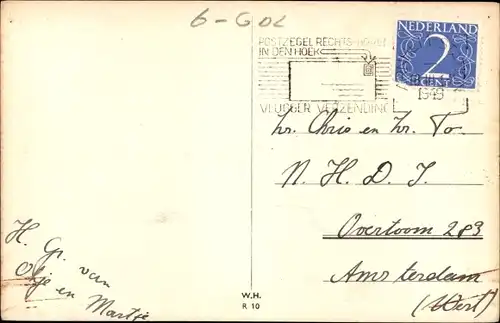 6-GDL
POSTZEGEL RECHTS-BOVEN
IN DEN HOEK
VLUGGER VERZENDING
NEDERLAND
2
CENT
1949
hr. Chris en hr. To.
N. H. D. J.
Overtoom 283
Amsterdam
(West)
H. Gr. van
en Martje
W.H.
R 10